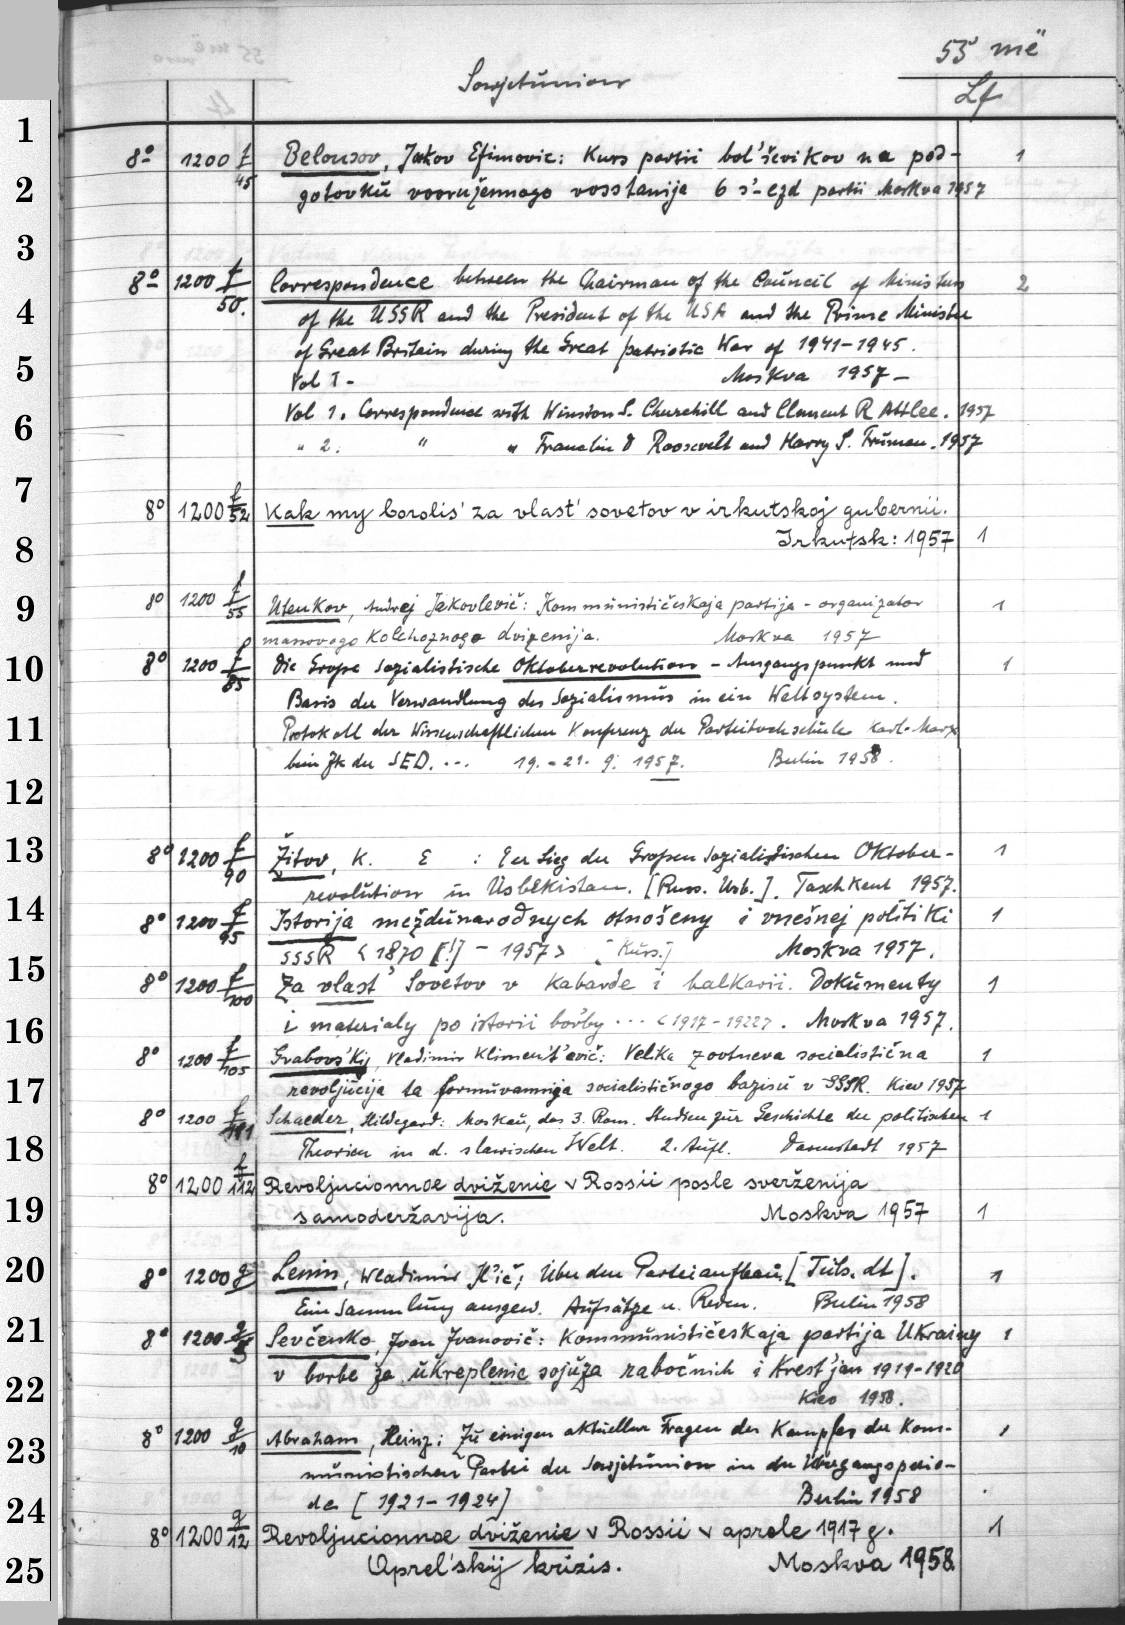 55 më
Sowjetunion
Lf
1
8° 1200 f/45 Belousov, Jakov Efimovic: Kurs partii bol'ševikov na pod- 1
2 gotovku vooružennogo vosstanija 6 s'-ezd partii Moskva 1957
3
8° 1200 f/50. Correspondence between the Chairman of the Council of Ministers 2
4 of the USSR and the President of the USA and the Prime Minister
of Great Britain during the Great patriotic War of 1941-1945.
5 Vol 1 - Moskva 1957 -
Vol 1. Correspondence with Winston S. Churchill and Clement R Attlee. 1957
6 " 2. " " Franclin D Roosevelt and Harry S. Truman. 1957
7
8° 1200 f/52 Kak my borolis' za vlast' sovetov v irkutskoj gubernii.
8 Irkutsk: 1957 1
9 8° 1200 f/55 Utenkov, Andrej Jakovlevič: Kommunističeskaja partija - organizator 1
massovogo Kolchoznogo dviženija. Moskva 1957
10 8° 1200 f/85 Die Große sozialistische Oktoberrevolution - Ausgangspunkt und 1
Basis der Verwandlung des Sozialismus in ein Weltsystem.
11 Protokoll der Wissenschaftlichen Konferenz der Parteihochschule Karl-Marx
beim Zk der SED. ... 19.-21. 9. 1957. Berlin 1958.
12
13 8° 1200 f/90 Žitov, K. E : Der Sieg der Großen Sozialistischen Oktober- 1
revolution in Usbekistan. [Russ. Usb.]. Taschkent 1957.
14 8° 1200 f/95 Istorija meždunarodnych otnošeny i vnešnej politiki 1
SSSR <1870 [!] - 1957> [Kurs.] Moskva 1957.
15 8° 1200 f/100 Za vlast' Sovetov v Kabarde i balkarii. Dokumenty 1
16 i materialy po istorii bor'by ... <1917-1922>. Moskva 1957.
8° 1200 f/105 Grabovs'kij, Vladimir Kliment'evič: Velika žovtneva socialistična 1
17 revoljucija ta formuvannja socialističnogo bazisu v SSSR. Kiew 1957
8° 1200 f/111 Schaeder, Hildegard: Moskau, das 3. Rom. Studien zur Geschichte der politischen 1
18 Theorien in d. slawischen Welt. 2. Aufl. Darmstadt 1957
8° 1200 f/112 Revoljucionnoe dviženie v Rossii posle sverženija
19 samoderžavija. Moskva 1957 1
20 8° 1200 g Lenin, Wladimir Il'ič; Über den Parteiaufbau. [Teils. dt]. 1
Ein Sammlung ausgew. Aufsätze u. Reden. Berlin 1958
21 8° 1200 g/5 Sevčenko, Ivan Ivanovič: Kommunističeskaja partija Ukrainy 1
v borbe za ukreplenie sojuza rabočnih i Krest'jan 1919-1920
22 Kiev 1958.
8° 1200 g/10 Abraham, Heinz: Zu einigen aktuellen Fragen des Kampfes der Kom- 1
23 munistischen Partei der Sowjetunion in der Übergangsperio-
de [1921-1924] Berlin 1958
24 8° 1200 g/12 Revoljucionnoe dviženie v Rossii v aprele 1917 g. 1
25 Aprel'skij krizis. Moskva 1958